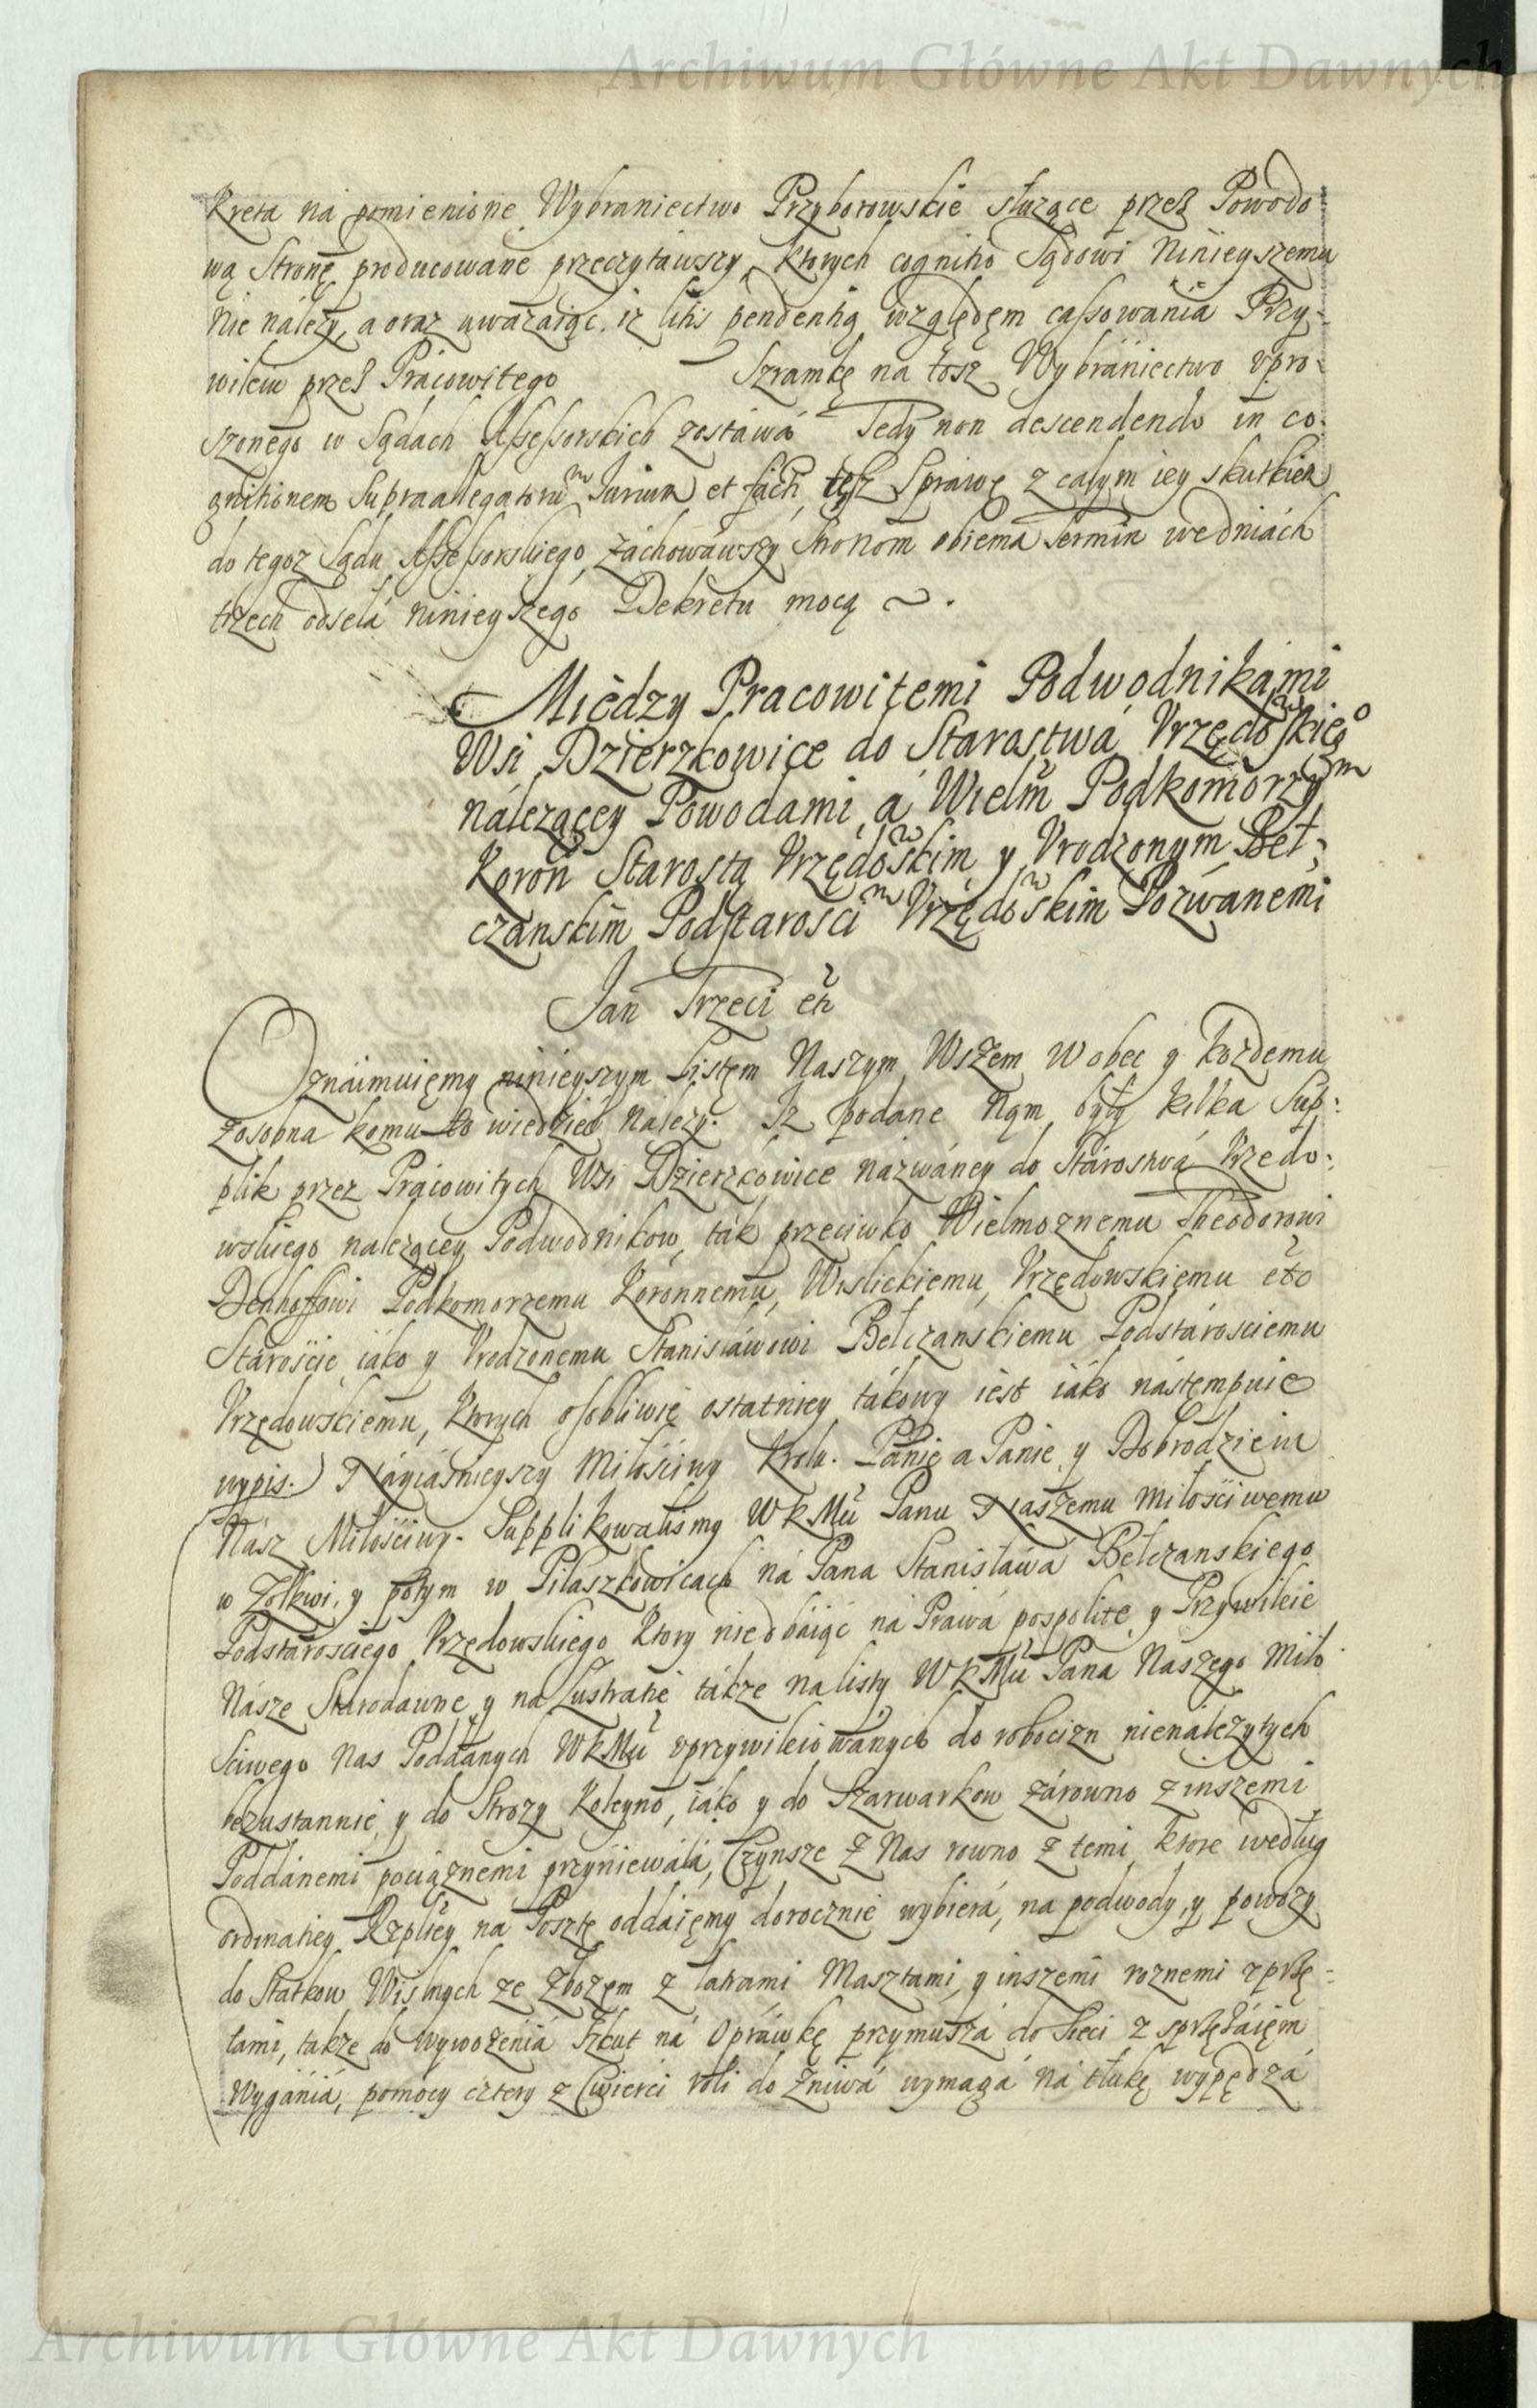 Archiwum Główne Akt Dawnych
kreta na pomienione Wybraniectwo Przyborowskie słuzące przes Powodo:
wą Stronę producowane przeczytawszy, ktorych cognitio Sądowi Ninieyszemu
nie należy, a oraz uwazaiąc iz litis pendentia względem cassowania Przy:
wileiu przes Pracowitego Szramkę na tosz Wybraniectwo upro:
szonego w Sądach Assessorskich zostawa Tedy non descendendo in co:
gnitionem Supraallegatorum Iurium et facti, tęsz Sprawę z całym iey skutkiem
do tegoz Sądu Assessorskiego, zachowawszy Stronom obiema termin wedniach
trzech odseła ninieyszego Dekretu mocą ~.
Między Pracowitemi Podwodnikami
Wsi Dzierzkowice do Starostwá Vrzędowskiego
náleząćey Powodami, á Wielm Podkomorzym
Koron Starostą Vrzędowskim, y Vrodzonym Beł:
czanskim Podstarościm Vrzędowskim Pozwanemi
Jan Trzeci etc
Oznaimuięmy ninieyszym Listęm Naszym Wszem wobec y kozdemu
zosobna komu to wiedzieć nalezy. Iz podane Nąm były kilka Sup:
plik przez Prácowitych Wsi Dzierzkowice nazwáney do Stárostwá Vrzedo:
wskiego nalezącey Podwodnikow, ták przeciwko Wielmoznemu Theodorowi
Denhoffowi Podkomorzemu Koronnemu, Wislickiemu, Vrzędowskiemu etc
Starośćie, iáko y Vrodzonemu Stanisławowi Bełczanskiemu Podstárosciemu
Vrzędowskiemu, ktorych osobliwie ostatniey tákowy iest iáko nástempuie
wypis.) Náyiásnieyszy Miłośćiwy krolu. Pánie a Panie y Dobrodzieiu
Nász Miłośćiwy. Supplikowalismy WKMci Panu Naszemu miłośćiwemu
w Zołkwi, y potym w Pilaszkowicach ná Pana Stanisława Bełczanskiego
Podstarosciego Vrzędowskiego, ktory niedbáiąc ná Prawá pospolite, y Przywileie
Násze Starodawne, y na Lustratie tákze na listy WKMci Pana Naszego Miło
sciwego nas Poddanych WKMci uprzywileiowanych do robocizn nienalezytych
bezustannie, y do Strozy koleyno, iáko y do Szarwarkow zárowno z inszemi
Poddánemi pociąznemi przyniewala, Czynsze z Nas rowno z temi, ktore według
ordinatiey Rzpltey na Posztę oddaięmy dorocznie wybierá, na podwody, y powozy
do Statkow Wislnych ze Zbozęm z latrami Masztami, y inszemi roznemi zprzę=
tami, takze do wywozenia Szkut ná Opráwkę przymusza do Sieci z sprzężáięm
wygánia, pomocy cztery z Cwierci roli do Zniwá wymagá ná tłukę wypędzá
Archiwum Główne Akt Dawnych